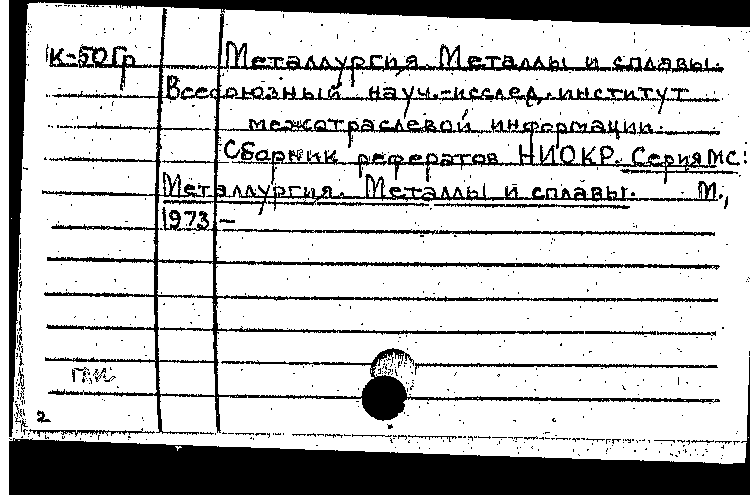 К-50Гр Металлургия. Металлы и сплавы.
Всесоюзный науч.-исслед. институт
межотраслевой информации.
Сборник рефератов НИОКР. Серия МС:
Металлургия. Металлы и сплавы. М.,
1973 –
2